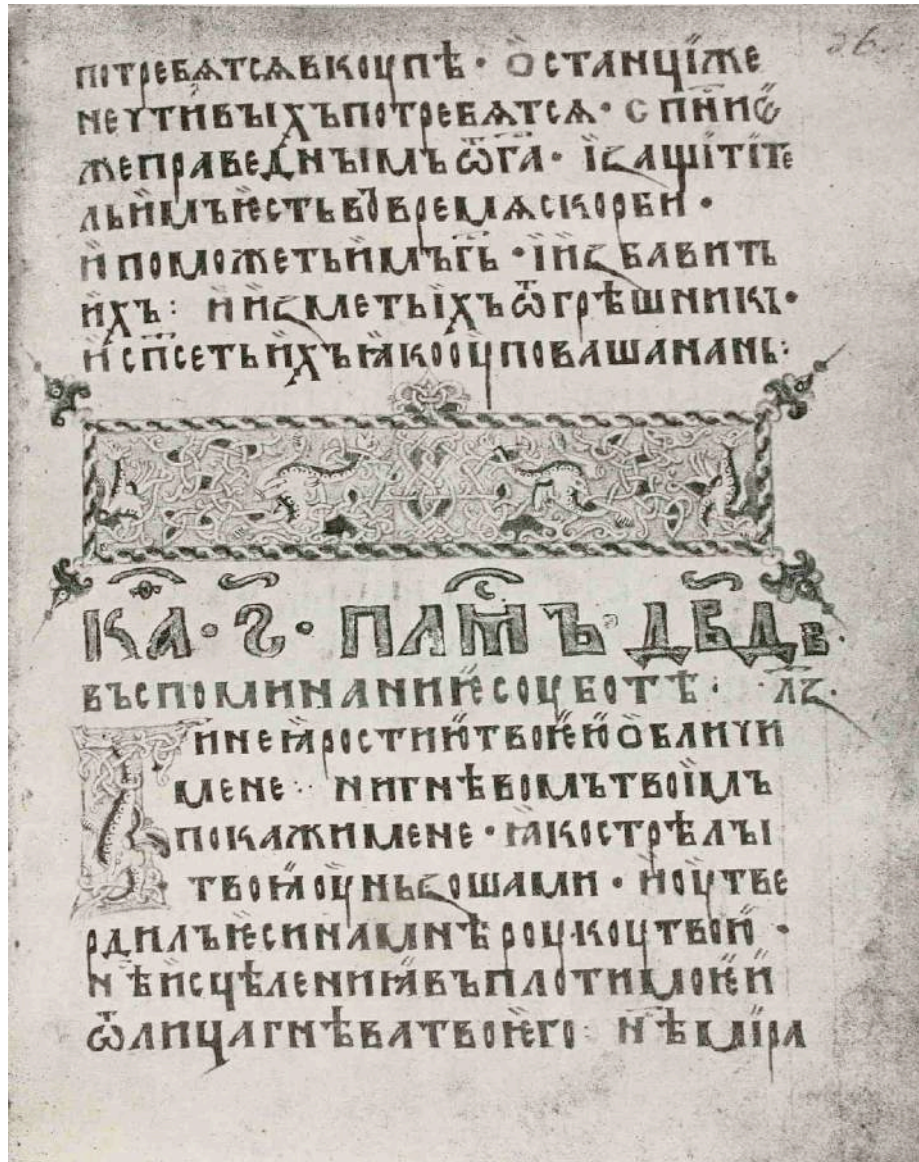 26.
потребѧтсѧвкоупѣ · ѡ҆станціиже
неутивыхъпотребѧтсѧ · сп҃ниѥ
жеправеднымъѿга · їꙁащітіте
льи҆мъѥстьвъвремѧскорби ·
и҆поможетьи҆мъг҃ь · їи҆ꙁбавить
и҆хъ : и҆и҆ꙁметьїхъѿгрѣшникъ ·
и҆сп҃сетьи҆хъꙗкооуповашанань :
каѳ · г҃ · пⷭ҇амъ дв҃дв ·
въспоминаниѥсоуботѣ · лꙁ ·
Г҃инеꙗростиютвоѥюѡбличи
мене ·· нигнѣвомътвоїмъ
покажимене · ꙗкострѣлы
твоꙗоуньꙁошами · и҆оутве
рдилъѥсинамнѣроукоутвою ·
нѣи҆сцѣлениꙗвъплотимоѥи
ѿлицагнѣватвоѥго : нѣмїра